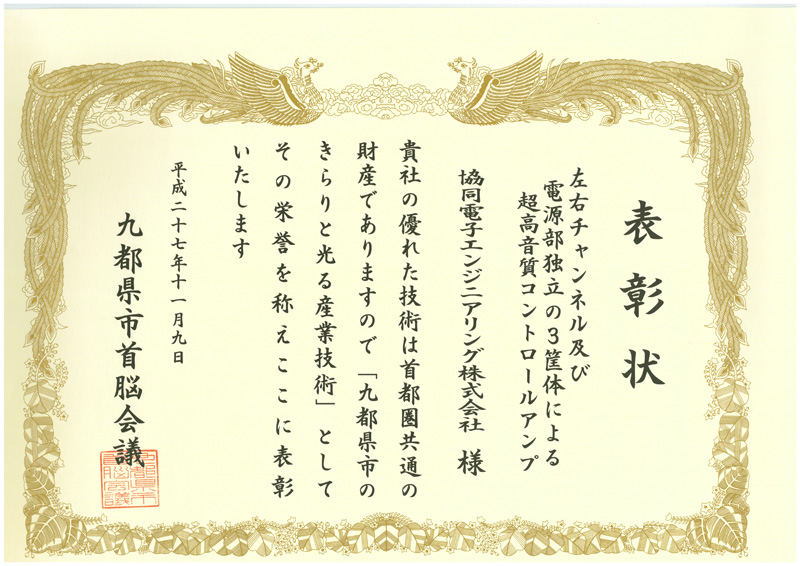 表彰状
左右チャンネル及び
電源部独立の3筐体による
超高音質コントロールアンプ
協同電子エンジニアリング株式会社 様
貴社の優れた技術は首都圏共通の
財産でありますので「九都県市の
きらりと光る産業技術」として
その栄誉を称えここに表彰
いたします
平成二十七年十一月九日
九都県市首脳会議
九都県市
首脳会議